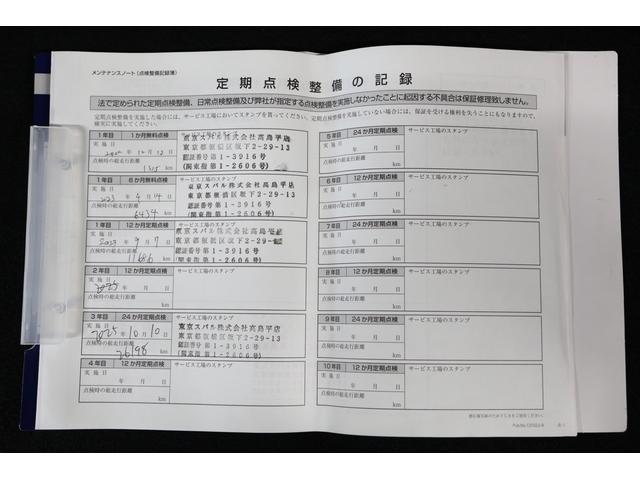 メンテナンスノート（点検整備記録簿）
定期点検整備の記録
法で定められた定期点検整備、日常点検整備及び弊社が指定する点検整備を実施しなかったことに起因する不具合は保証修理致しません。
定期点検整備を実施した場合には、サービス工場においてスタンプを貰ってください。定期点検整備を実施していない場合には、保証を受ける権利を失うこともになりますので、
確実に実施してください。
1年目 1か月無料点検
実施日
年 12月 12日
点検時の総走行距離
km
東京スバル株式会社高島平店
東京都板橋区坂下2-29-13
認証番号第1-3916号
(関東指第1-2606号)
1年目 6か月無料点検
サービス工場のスタンプ
実施日
2023年 4月 14日
点検時の総走行距離
6434 km
東京スバル株式会社高島平店
東京都板橋区坂下2-29-13
認証番号第1-3916号
(関東指第1-2606号)
1年目 12か月定期点検
サービス工場のスタンプ
実施日
2023年 9月 7日
点検時の総走行距離
11686 km
東京スバル株式会社高島平店
東京都板橋区坂下2-29-
認証番号第1-3916号
(関東指第1-2606号)
2年目 12か月定期点検
サービス工場のスタンプ
実施日
2025
年 月 日
点検時の総走行距離
km
3年目 24か月定期点検
サービス工場のスタンプ
実施日
2025年 10月 10日
点検時の総走行距離
26198 km
東京スバル株式会社高島平店
東京都板橋区坂下2-29-13
認証番号第1-3916号
(関東指第1-2606号)
4年目 12か月定期点検
サービス工場のスタンプ
実施日
年 月 日
点検時の総走行距離
km
5年目 24か月定期点検
サービス工場のスタンプ
実施日
年 月 日
点検時の総走行距離
km
6年目 12か月定期点検
サービス工場のスタンプ
実施日
年 月 日
点検時の総走行距離
km
7年目 24か月定期点検
サービス工場のスタンプ
実施日
年 月 日
点検時の総走行距離
km
8年目 12か月定期点検
サービス工場のスタンプ
実施日
年 月 日
点検時の総走行距離
km
9年目 24か月定期点検
サービス工場のスタンプ
実施日
年 月 日
点検時の総走行距離
km
10年目 12か月定期点検
サービス工場のスタンプ
実施日
年 月 日
点検時の総走行距離
km